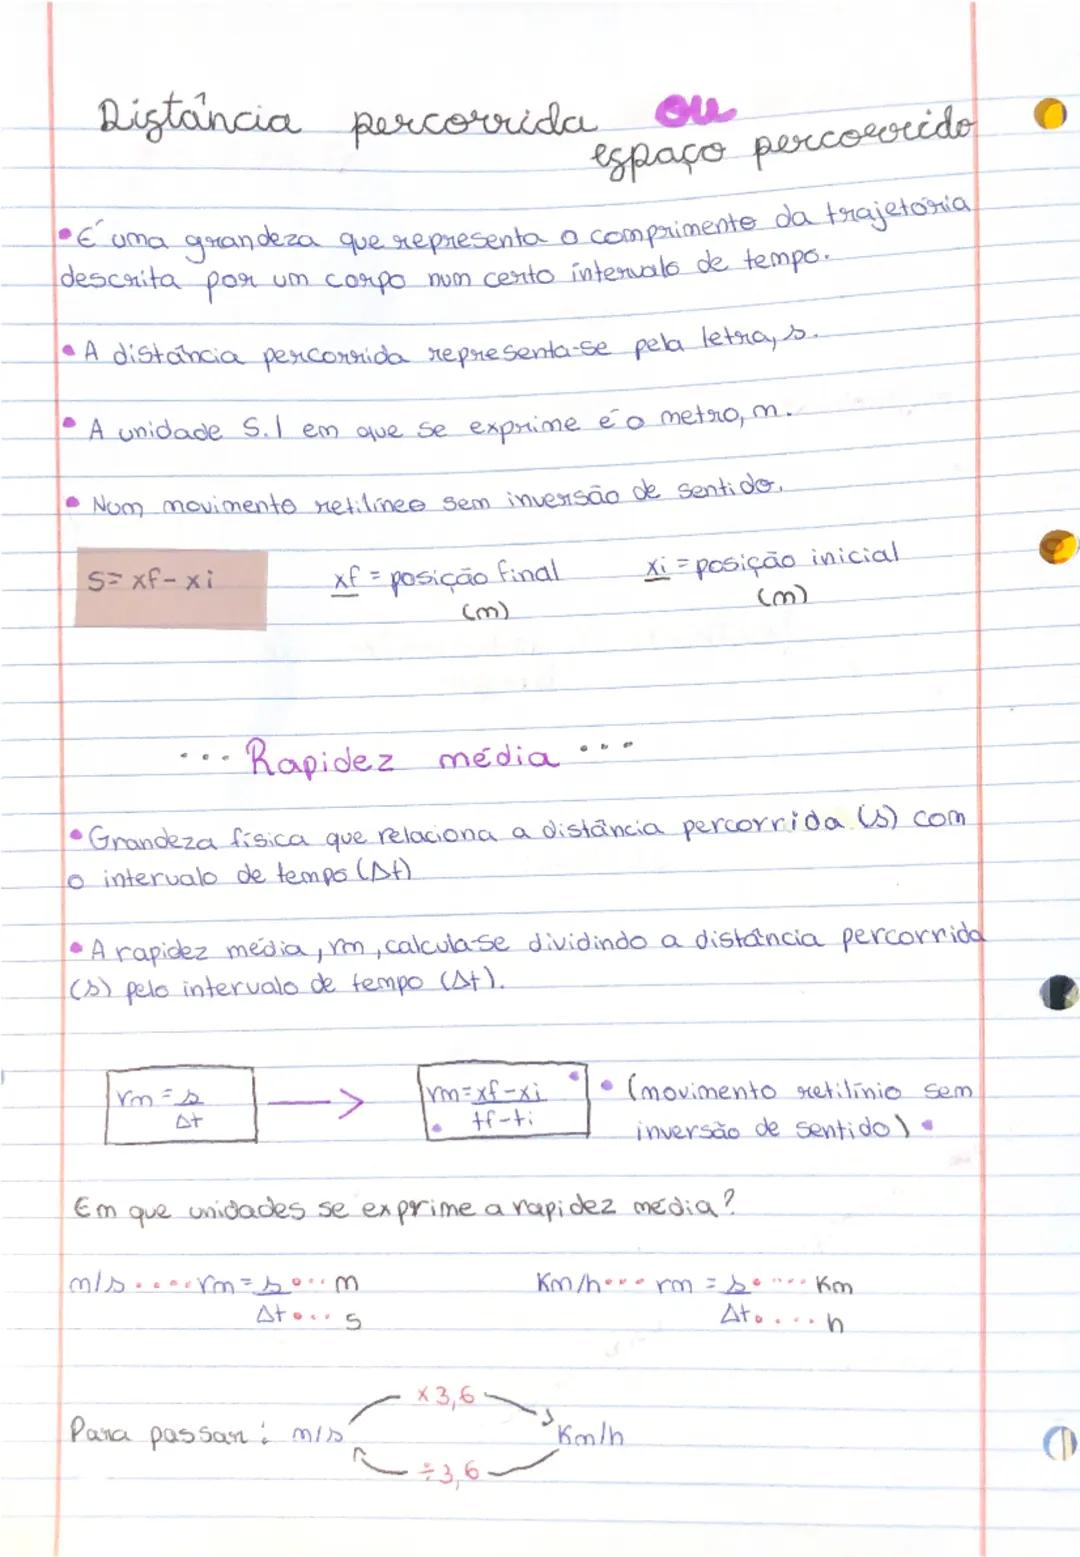 Distância percorrida ou
espaço percorrido
• É uma grandeza que representa o comprimento da trajetória
descrita por um corpo num certo intervalo de tempo.
• A distância percorrida representa-se pela letra, s.
• A unidade S.I em que se exprime é o metro, m.
• Num movimento retilíneo sem inversão de sentido.
S= xf - xi xf = posição final xi = posição inicial
(m) (m)
... Rapidez média ...
• Grandeza física que relaciona a distância percorrida (s) com
o intervalo de tempo (Δt)
• A rapidez média, rm, calcula-se dividindo a distância percorrida
(s) pelo intervalo de tempo (Δt).
rm = s rm = xf-xi • (movimento retilínio sem
Δt tf-ti inversão de sentido) •
Em que unidades se exprime a rapidez média?
m/s .... rm = s .... m Km/h .... rm = s ..... Km
Δt .... s Δt ..... h
x 3,6
Para passar: m/s Km/h
÷ 3,6